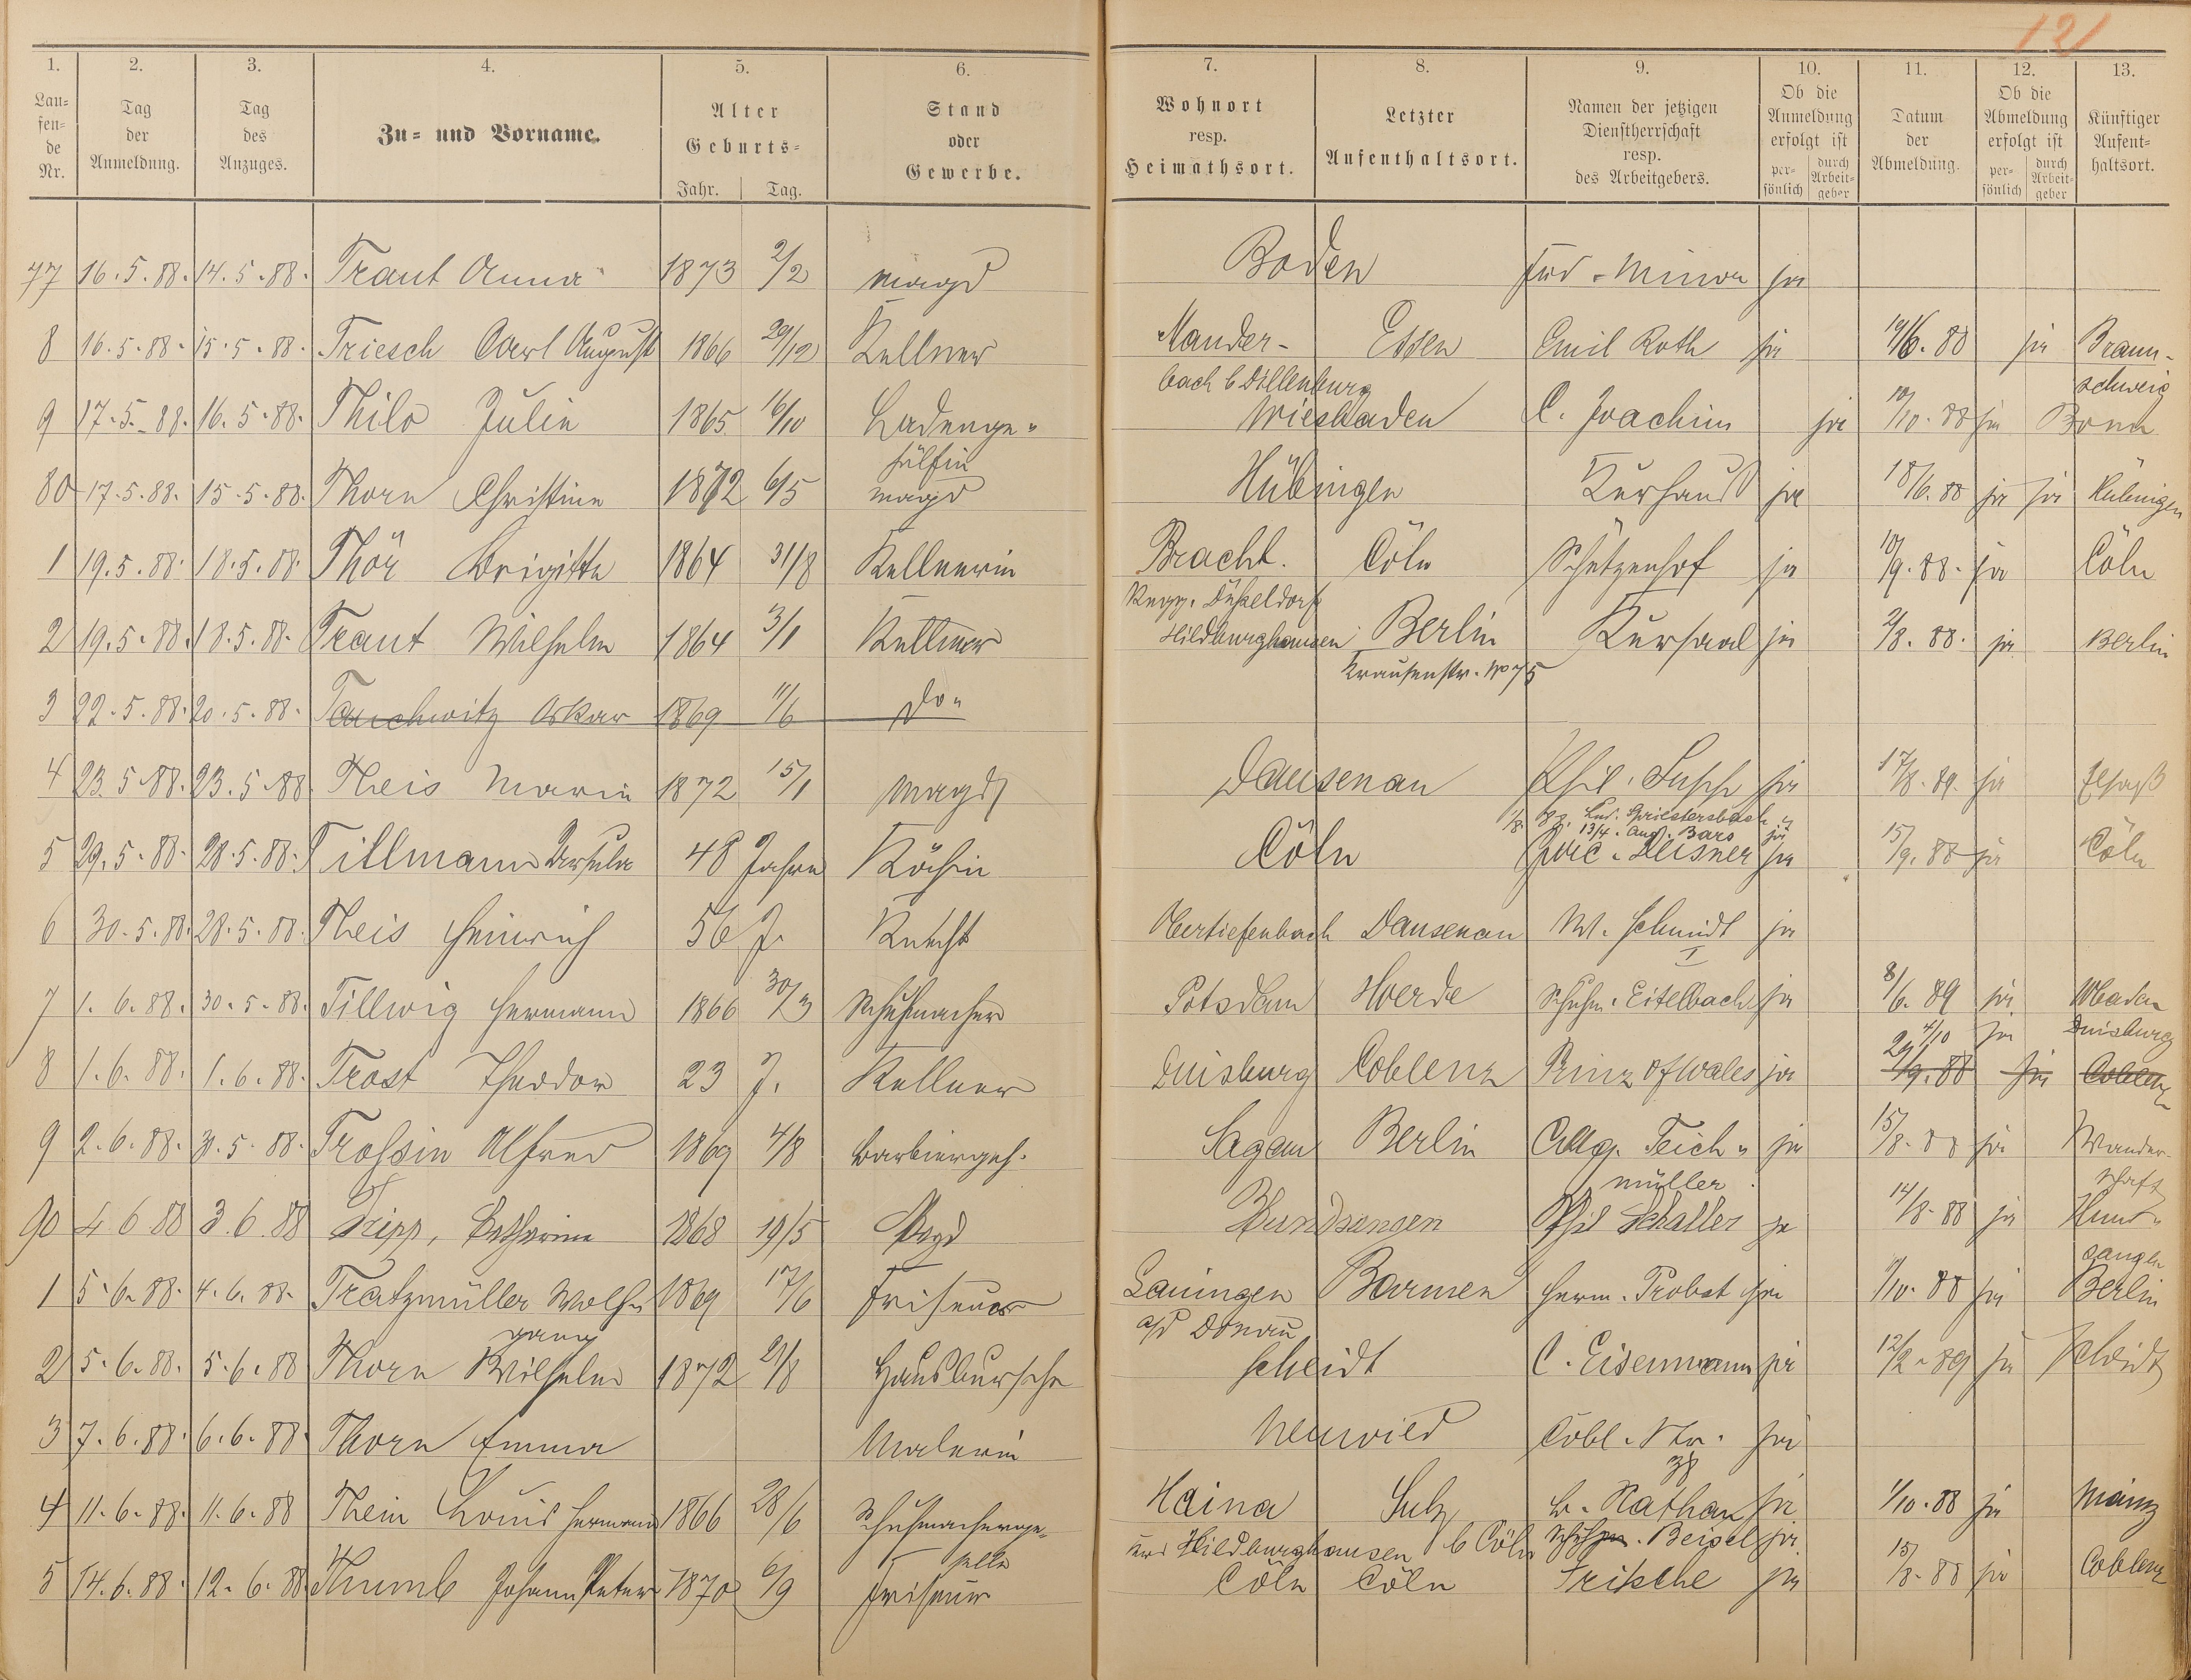 121
1. 2. 3. 4. 5. 6. 7. 8. 9. 10. 11. 12. 13.
Lau=fen=de Nr. Tag der Anmeldung. Tag des Anzuges. Zu= und Vorname. Alter Geburts= Jahr. Tag. Stand oder Gewerbe. Wohnort resp. Heimathsort. Letzter Aufenthaltsort. Namen der jetzigen Dienstherrschaft resp. des Arbeitgebers. Ob die Anmeldung erfolgt ist per=sönlich durch Arbeit=geber Datum der Abmeldung. Ob die Abmeldung erfolgt ist per=sönlich durch Arbeit=geber Künftiger Aufent=haltsort.
77 16.5.88. 14.5.88. Traut Anna 1873 2/2 Magd Boden Minor ja
8 16.5.88. 15.5.88. Triesch Carl August 1866 29/12 Kellner Mander- Essen Emil Roth ja 19/6.88 ja Braun-
bach b Dillenburg schweig
9 17.5.88. 16.5.88. Thilo Julie 1865 16/10 Ladenge- Wiesbaden C. Joachim ja 10/10.88 ja Bonn
hülfin
80 17.5.88. 15.5.88. Thorn Christine 1872 6/5 Magd Hübingen Kurhaus ja 18/6.88 ja ja Hübingen
1 19.5.88. 18.5.88. Thör Brigitte 1864 31/8 Kellnerin Bracht. Cöln Schützenhof ja 10/9.88. ja Cöln
Düsseldorf
2 19.5.88. 18.5.88. Traut Wilhelm 1864 3/1 Kellner Hildburghausen Berlin Kursaal ja 2/8.88. ja Berlin
Krausenstr. No 75
3 22.5.88. 20.5.88. Tauchwitz Oskar 1869 11/6 do.
4 23.5.88. 23.5.88. Theis Marie 1872 15/1 Magd Dausenau Phil. ja 17/8.89. ja Elsaß
Lud. Spriestersbach
13/4. Aug. Bars ja
5 29.5.88. 28.5.88. Tillmann Ursula 48 Jahre Köchin Cöln Meisner ja 15/9.88 ja Cöln
6 30.5.88. 28.5.88. Theis Heinrich 56 J. Knecht Obertiefenbach Dausenau W. Schmidt ja
I
7 1.6.88. 30.5.88. Tillwig Hermann 1866 30/3 Schuhmacher Potsdam Hoerde Schuhm. Eitelbach ja 8/6.89 ja Wbaden
4/10 ja Duisburg
8 1.6.88. 1.6.88. Trost Theodor 23 J. Kellner Duisburg Coblenz Prinz of Wales ja 29/9.88 ja Coblenz
9 2.6.88. 31.5.88. Trossin Alfred 1869 4/8 Barbiergeh. Sagan Berlin Aug. Teich- ja 15/8.88 ja Wander-
müller schaft
90 4 6 88 3.6.88 Tripp, Catharina 1868 19/5 Magd Hundsangen Phil Schaller ja 14/8 88 ja Hund-
sangen
1 5.6.88. 4.6.88. Tratzmüller Wolf- 1869 17/6 Friseur Lauingen Barmen Herm. Probst ja 1/10.88 ja Berlin
gang a/d Donau
2 5.6.88. 5.6.88 Thorn Wilhelm 1872 21/8 Hausbursche Scheidt C. Eisenmann ja 12/2.89 ja Scheidt
3 7.6.88. 6.6.88. Thorn Emma Malerin Neuwied Cobl. Str. ja
38
4 11.6.88. 11.6.88 Thein Louis Hermann 1866 28/6 Schuhmacherge- Haina Sulz B. Nathan ja 1/10.88 ja Mainz
selle Hildburghausen b Cöln Beisel ja
5 14.6.88. 12.6.88. Thumb Johann Peter 1870 6/9 Friseur Cöln Cöln Fritsche ja 15/8.88 ja Coblenz